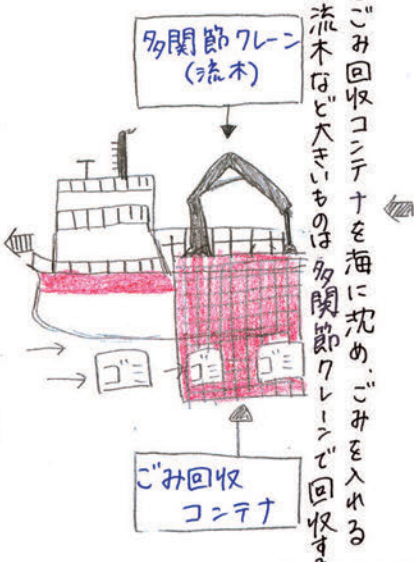 ごみ回収コンテナを海に沈め、ごみを入れる
流木など大きいものは多関節クレーンで回収す
多関節クレーン
(流木)
ゴミ
ゴミ
ゴミ
ごみ回収
コンテナ